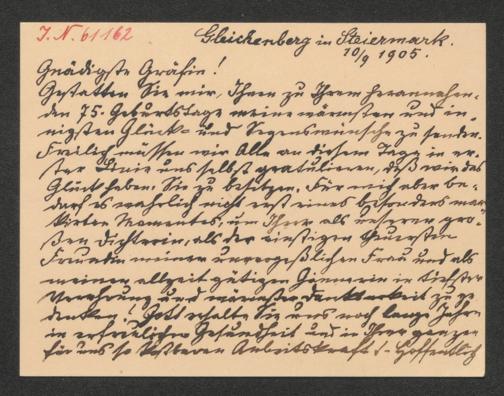 J. N. 61162
Gleichenberg in Steiermark.
10/9 1905.
Gnädigste Gräfin!
Gestatten Sie mir, Ihnen zu Ihrem herannahen-
den 75. Geburtstage meine wärmsten und in-
nigsten Glück- und Segenswünsche zu senden.
Freilich müssen wir Alle an diesem Tag in er-
ster Linie uns selbst gratulieren, daß wir das
Glück haben, Sie zu besitzen. Für mich aber be-
darf es wahrlich nicht erst eines besonders mar-
kirten Momentes, um Ihrer als unserer grö-
ßten Dichterin, als der einstigen theuersten
Freundin meiner unvergeßlichen Frau und als
meiner allzeit gütigen Gönnerin in tiefster
Verehrung und wärmster Dankbarkeit zu ge-
denken! Gott erhalte Sie uns noch lange Jahre
in erfreulicher Gesundheit und in Ihrer ganzen
für uns so kostbaren Arbeitskraft! - Hoffentlich